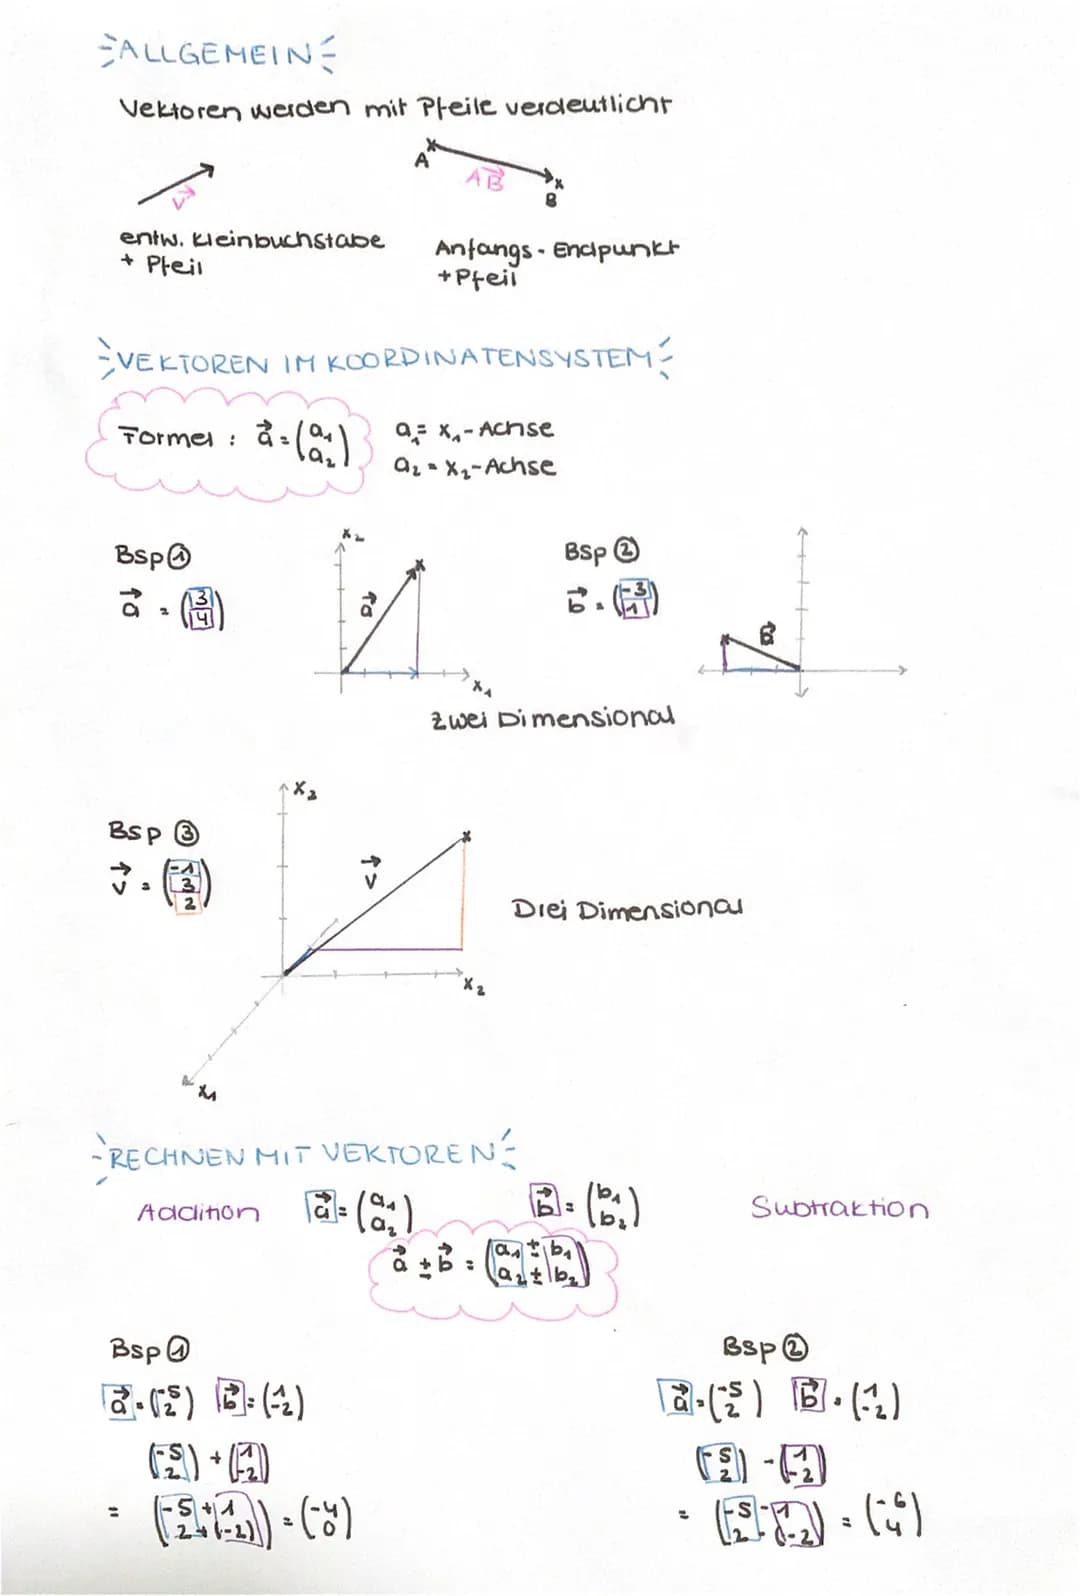 ALLGEMEIN
Vektoren werden mit Pfeile verdeutlicht
v⃗
A
AB⃗
B
entw. Kleinbuchstabe
+ Pfeil
Anfangs - Endpunkt
+ Pfeil
VEKTOREN IM KOORDINATENSYSTEM
Formel : a⃗ = (a₁ a₂)
a₁ = x₁-Achse
a₂ = x₂-Achse
Bsp ①
a⃗ = (3 4)
x₂
a⃗
x₁
Bsp ②
b⃗ = (-3 1)
b⃗
Zwei Dimensional
Bsp ③
v⃗ = (-1 3 2)
x₃
v⃗
x₂
x₁
Drei Dimensional
RECHNEN MIT VEKTOREN
Addition a⃗ = (a₁ a₂) b⃗ = (b₁ b₂) Subtraktion
a⃗ ± b⃗ = (a₁ ± b₁ a₂ ± b₂)
Bsp ①
a⃗ = (-5 2) b⃗ = (1 -2)
(-5 2) + (1 -2)
= (-5 + 1 2 + (-2)) = (-4 0)
Bsp ②
a⃗ = (-5 2) b⃗ = (1 -2)
(-5 2) - (1 -2)
= (-5 - 1 2 - (-2)) = (-6 4)